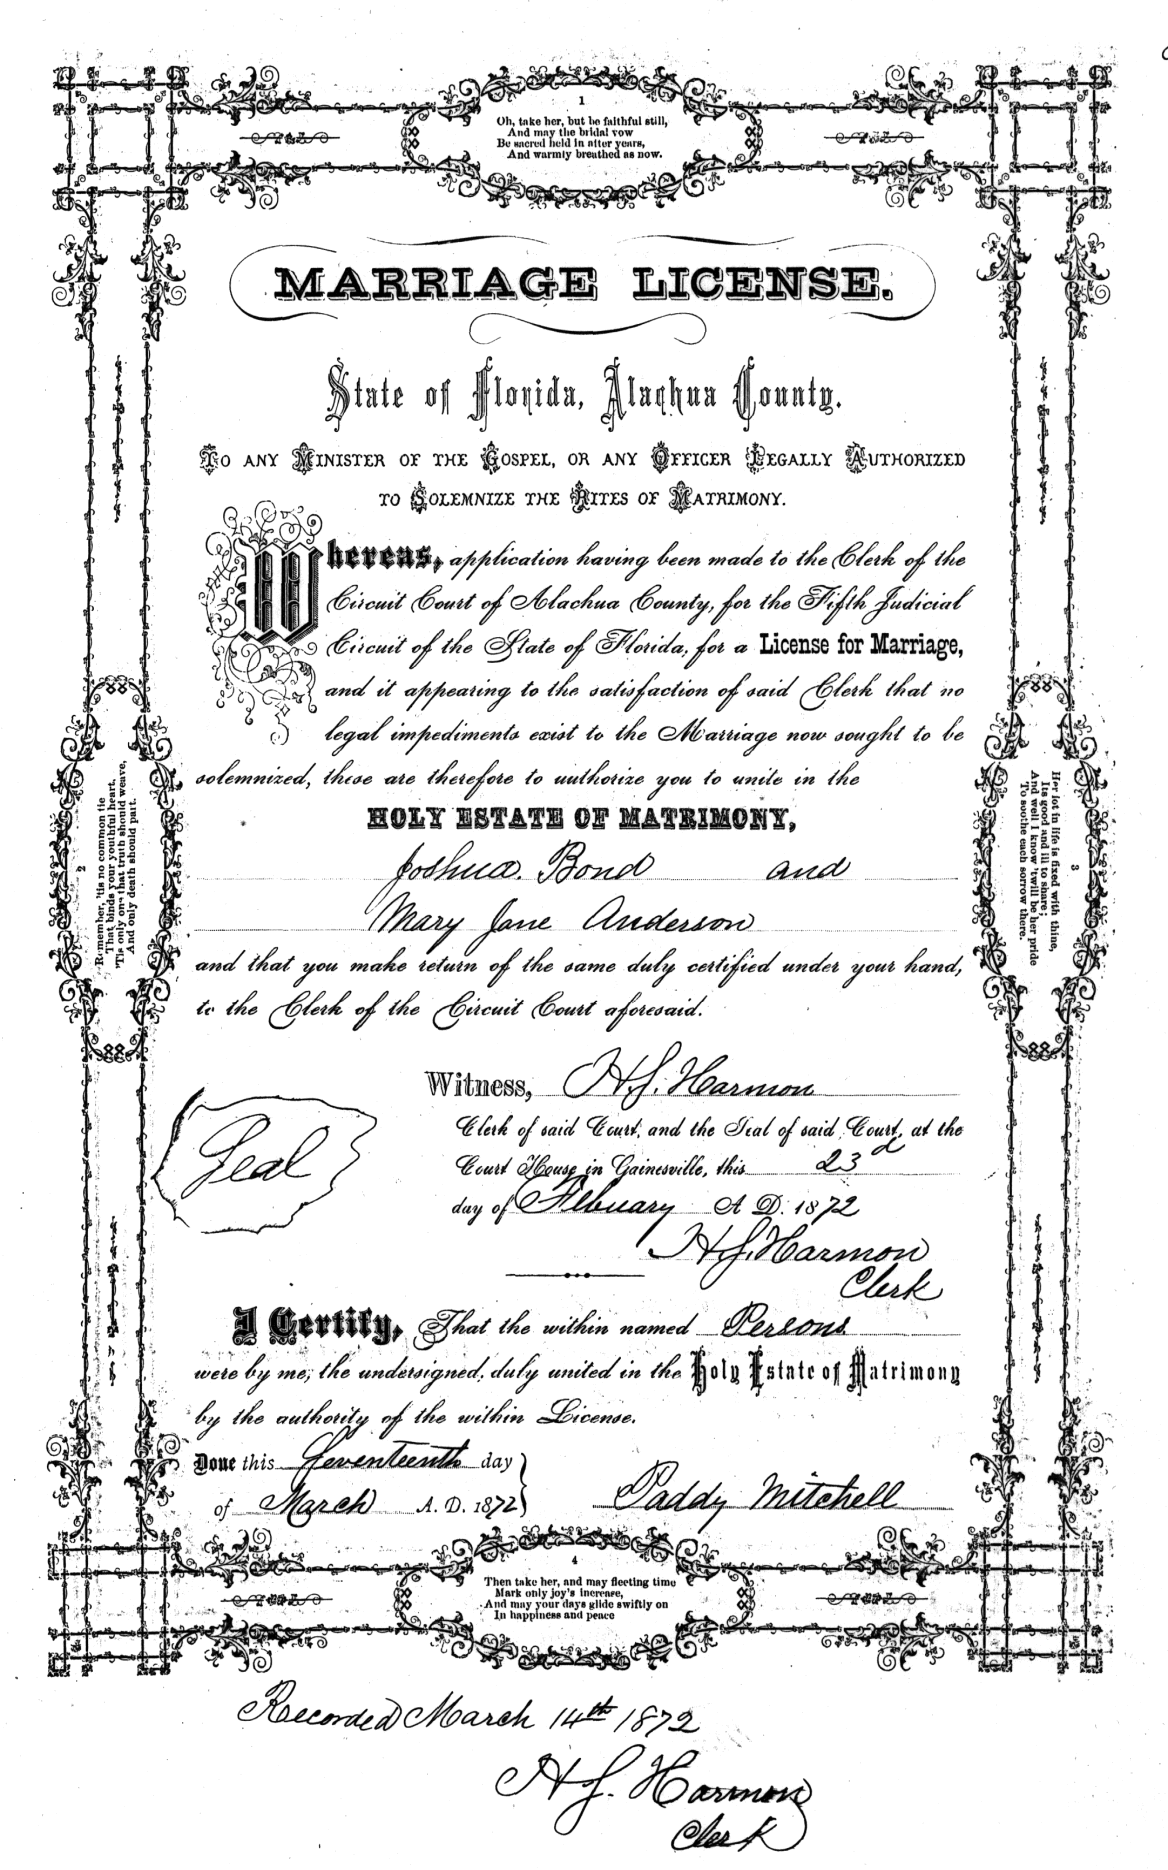 1
Oh, take her, but be faithful still,
And may the bridal vow
Be sacred held in after years,
And warmly breathed as now.
MARRIAGE LICENSE.
State of Florida, Alachua County.
TO ANY MINISTER OF THE GOSPEL, OR ANY OFFICER LEGALLY AUTHORIZED
TO SOLEMNIZE THE RITES OF MATRIMONY.
Whereas, application having been made to the Clerk of the
Circuit Court of Alachua County, for the Fifth Judicial
Circuit of the State of Florida, for a License for Marriage,
and it appearing to the satisfaction of said Clerk that no
legal impediments exist to the Marriage now sought to be
solemnized, these are therefore to authorize you to unite in the
HOLY ESTATE OF MATRIMONY,
Joshua. Bond and
Mary Jane Anderson
and that you make return of the same duly certified under your hand,
to the Clerk of the Circuit Court aforesaid.
2
Remember, 'tis no common tie
That binds your youthful heart,
'Tis only one that truth should weave,
And only death should part.
3
Her lot in life is fixed with thine,
Its good and ill to share;
And well I know 'twill be her pride
To soothe each sorrow there.
Witness, H. J. Harmon
Seal
Clerk of said Court, and the Seal of said Court, at the
Court House in Gainesville, this 23d
day of Febuary A D. 1872
H. J. Harmon
Clerk
I Certify, That the within named Persons
were by me, the undersigned, duly united in the Holy Estate of Matrimony
by the authority of the within License.
Done this Seventeenth day
of March A. D. 1872
Paddy Mitchell
4
Then take her, and may fleeting time
Mark only joy's increase,
And may your days glide swiftly on
In happiness and peace
Recorded March 14th 1872
H J. Harmon
Clerk